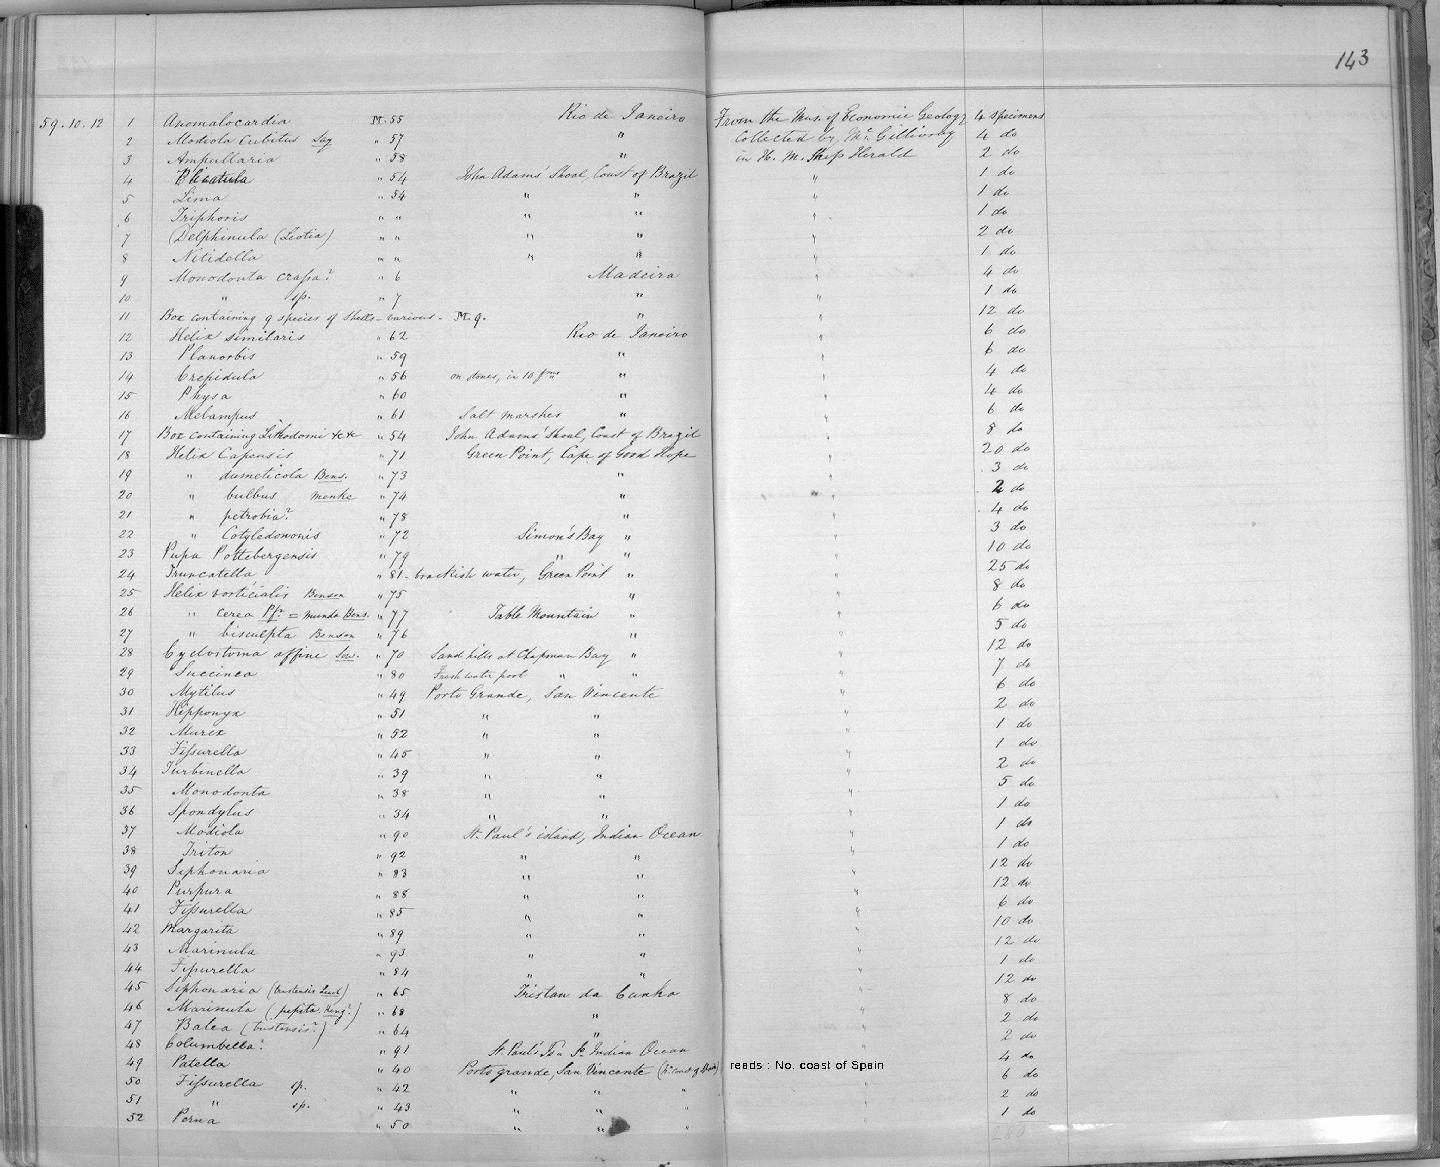 143
59.10.12 1 Anomalocardia M. 55 Rio de Janeiro From the Mus. of Economic Geology 4 specimens
2 Modiola Cubitus Say " 57 " Collected by Mr. Gillivray 4 do
3 Ampullaria " 58 " in H. M. Ship Herald 2 do
4 Plicatula " 54 John Adams' Shoal, Coast of Brazil " 1 do
5 Lima " 54 " " " 1 do
6 Triphoris " " " " " 1 do
7 Delphinula (Liotia) " " " " " 2 do
8 Nitidella " " " " " 1 do
9 Monodonta crassa? " 6 Madeira " 4 do
10 " sp. " 7 " " 1 do
11 Box containing 9 species of Shells - various - M. 9. " " 12 do
12 Helix similaris " 62 Rio de Janeiro " 6 do
13 Planorbis " 59 " " 6 do
14 Crepidula " 56 on stones, in 10 fms " " 4 do
15 Physa " 60 " 4 do
16 Melampus " 61 Salt marshes " " 6 do
17 Box containing Lithodomi &c &c " 54 John Adams' Shoal, Coast of Brazil " 8 do
18 Helix Capensis " 71 Green Point, Cape of Good Hope " 20 do
19 " dumeticola Bens. " 73 " " 3 do
20 " bulbus Menke " 74 " " 2 do
21 " petrobia? " 78 " " 4 do
22 " Cotyledonis " 72 Simon's Bay " " 3 do
23 Pupa Pottebergensis " 79 " " " 10 do
24 Truncatella " 81 - brackish water, Green Point " " 25 do
25 Helix vorticialis Benson " 75 " " 8 do
26 " cerea Pfr. = munda Bens. " 77 Table Mountain " " 6 do
27 " bisculpta Benson " 76 " " 5 do
28 Cyclostoma affine Sow. " 70 Sand hills at Chapman Bay " " 12 do
29 Succinea " 80 Fresh water pool " " " 7 do
30 Mytilus " 49 Porto Grande, San Vincente " 6 do
31 Hipponyx " 51 " " " 2 do
32 Murex " 52 " " " 1 do
33 Fissurella " 45 " " " 1 do
34 Turbinella " 39 " " " 2 do
35 Monodonta " 38 " " " 5 do
36 Spondylus " 34 " " " 1 do
37 Modiola " 90 St. Paul's island, Indian Ocean " 1 do
38 Triton " 92 " " " 1 do
39 Siphonaria " 83 " " " 12 do
40 Purpura " 88 " " " 12 do
41 Fissurella " 85 " " " 6 do
42 Margarita " 89 " " " 10 do
43 Marinula " 93 " " " 12 do
44 Fissurella " 84 " " " 1 do
45 Siphonaria (tristensis Leach) " 65 Tristan da Cunha " 12 do
46 Marinula (pepita, King?) " 68 " " 8 do
47 Balea (tristensis?) " 64 " " 2 do
48 Columbella? " 91 St. Paul's Isd. Indian Ocean " 2 do
49 Patella " 40 Porto grande, San Vincente (No. coast of Spain) reads : No. coast of Spain 4 do
50 Fissurella sp. " 42 " " " " 6 do
51 " sp. " 43 " " " " 2 do
52 Perna " 50 " " " " 1 do